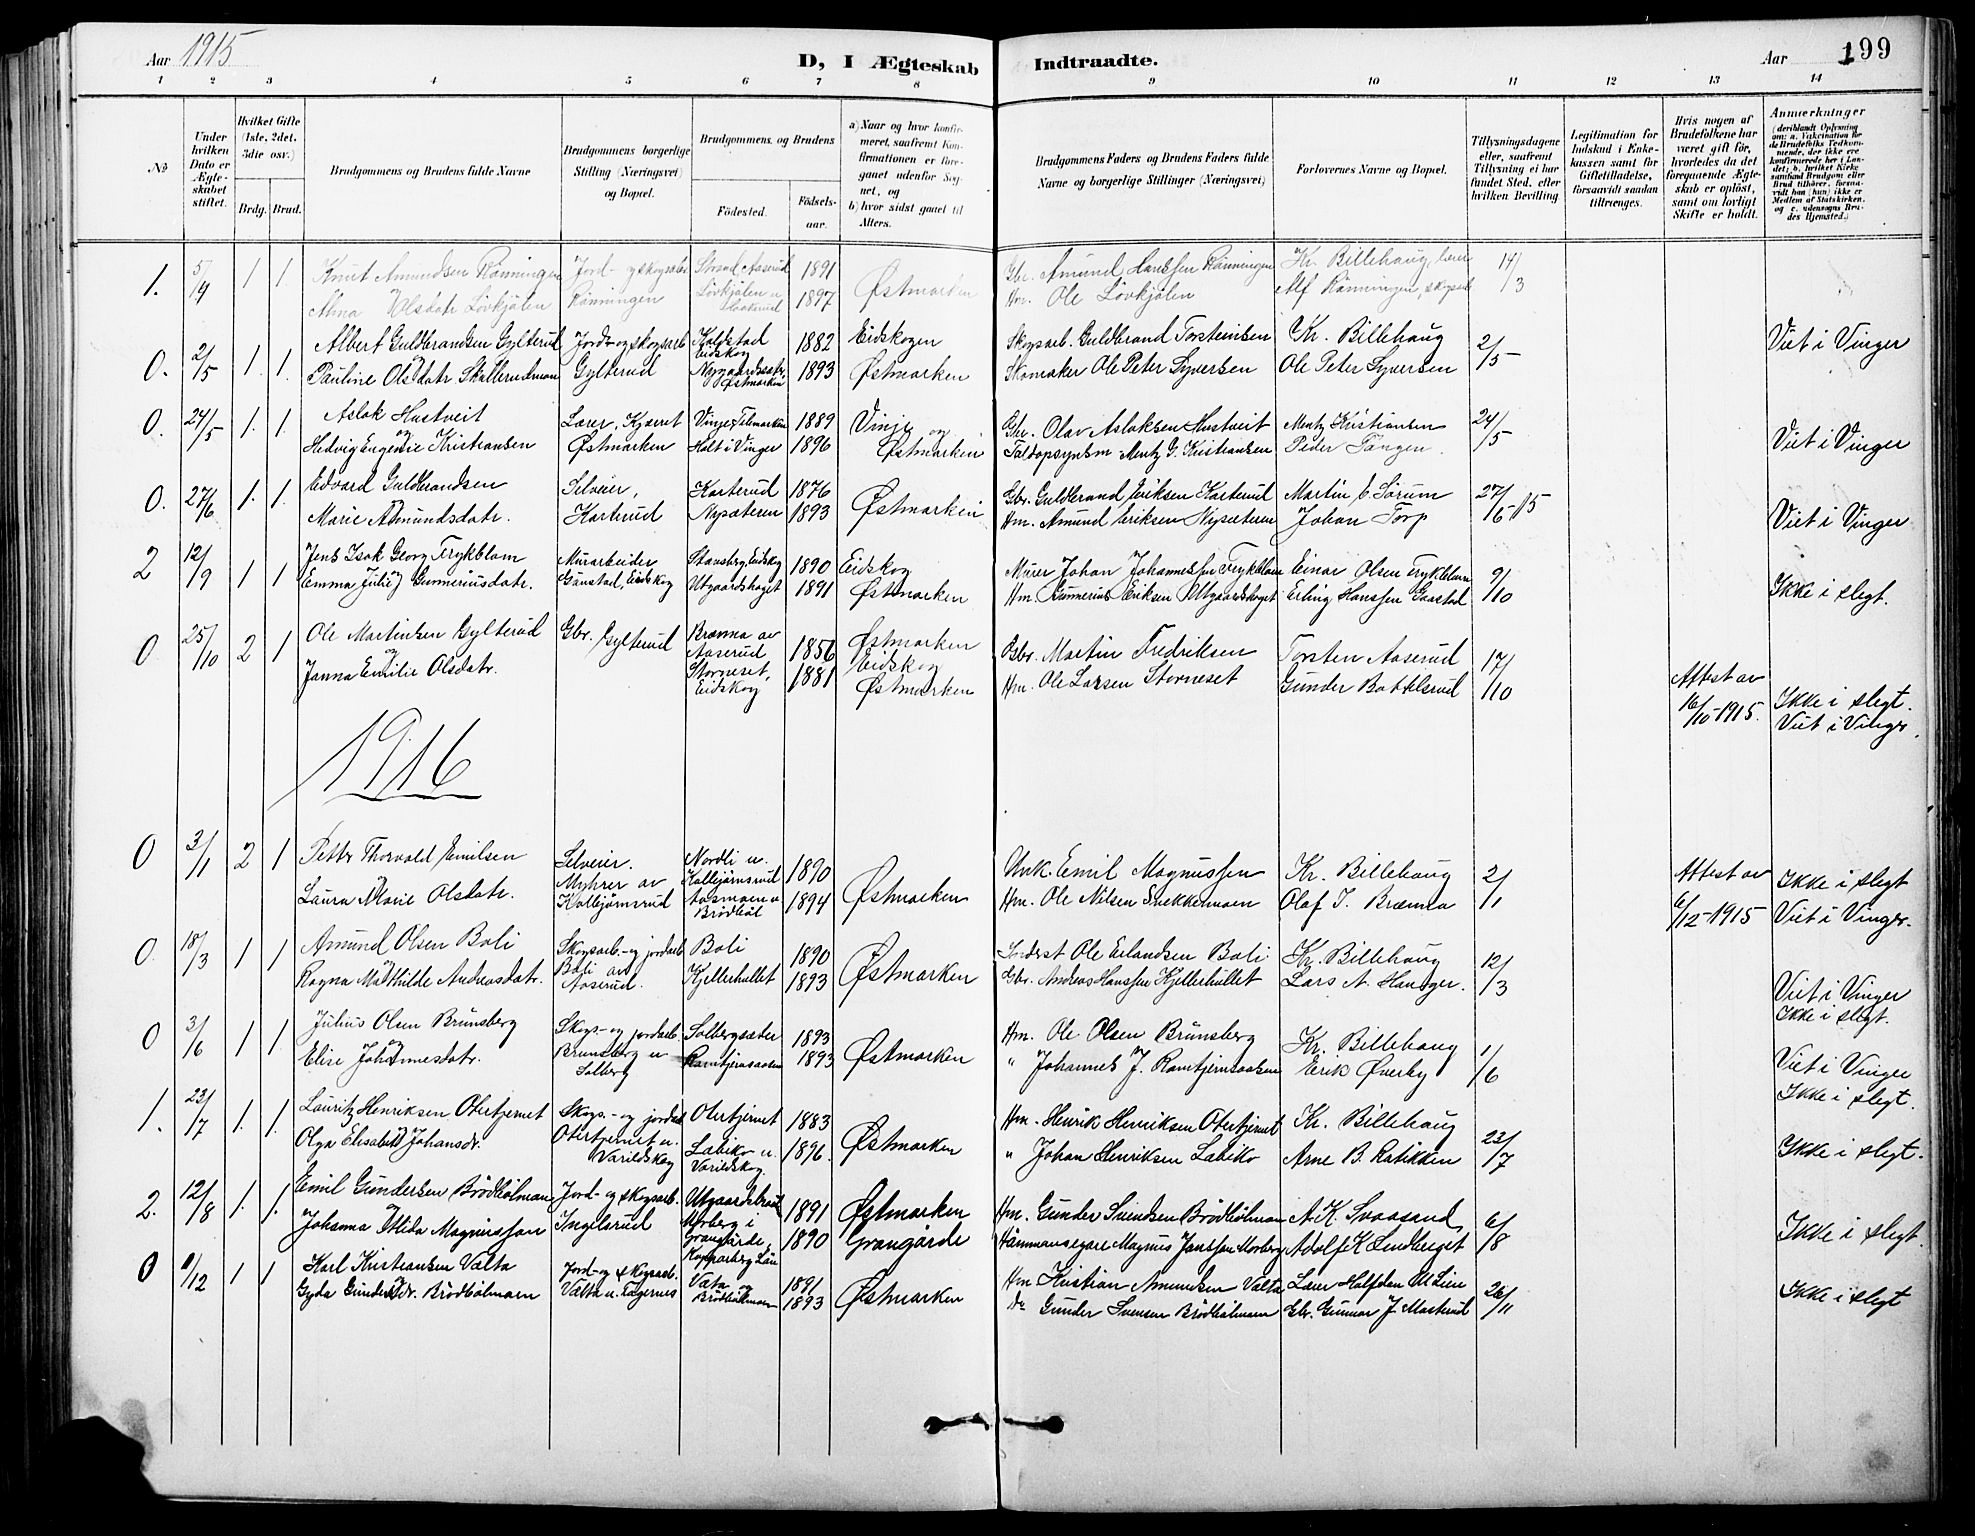 Aar 1915
D, I Ægteskab Indtraadte.
Aar 199
1 2 3 4 5 6 7 8 9 10 11 12 13 14
No
Under hvilken Dato er Ægteskabet stiftet.
Hvilket Gifte (1ste, 2det, 3die osv.)
Brdg. Brud.
Brudgommens og Brudens fulde Navne
Brudgommens borgerlige Stilling (Næringsvei) og Bopæl.
Brudgommens og Brudens
Fødested. Fødselsaar.
a) Naar og hvor konfirmeret, saafremt Konfirmationen er foregaaet udenfor Sognet, og
b) hvor sidst gaaet til Alters.
Brudgommens Faders og Brudens Faders fulde Navne og borgerlige Stillinger (Næringsvei)
Forlovernes Navne og Bopæl.
Tillysningsdagene eller, saafremt Tillysning ei har fundet Sted, efter hvilken Bevilling
Legitimation for Indskud i Enkekassen samt for Giftetilladelse, forsaavidt saadan tiltrænges.
Hvis nogen af Brudefolkene har været gift før, hvorledes da det foregaaende Ægteskab er opløst, samt om lovligt Skifte er holdt.
Anmærkninger
(deriblandt Oplysning om: a. Vakcination for de Brudefolks Vedkommende, der ikke ere konfirmerede her i Landet; b. hvilket Kirkesamfund Brudgom eller Brud tilhører, forsaavidt han (hun) ikke er Medlem af Statskirken, og c. udensogns Brudes Hjemsted.)
1. 5/4 1 1 Knut Amundsen Rønningen Jord- og skogsarb. Strand, Aaserud 1891 Østmarken Gbr. Amund Hanssen Rønningen Kr. Billehaug, lærer 14/3
Alma Olsdatr Løvkjølen Rønningen Løvkjølen u. 1897 Hm. Ole Løvkjølen Alf Rønningen, skogsarb
0. 2/5 1. 1. Albert Guldbrandsen Gylterud Jord- og skogsarb Koldstad Eidskog 1882 Eidskogen Skogsarb. Guldbrand Torsteinsen Kr. Billehaug 2/5 Viet i Vinger
og Pauline Olsdatr Skallerudmoen Gylterud Nygaardssætr, Østmarken 1893 Østmarken Skomaker Ole Peter Syversen Ole Peter Syversen
0. 24/5 1. 1. Aslak Hustveit Lærer, Kjærret Vinje, Telemarken 1889 Vinje og Gbr. Olav Aslaksen Hustveit Mentz Kristiansen 24/5 Viet i Vinger
og Hedvig Eugenie Kristiansen Østmarken Holt i Vinger 1896 Østmarken Toldopsynsm Mentz G. Kristiansen Peder Tangen.
0. 27/6 1. 1. Edvard Guldbrandsen Selveier, Karterud 1876 Østmarken Gbr. Guldbrand Eriksen Karterud Martin C. Sørum 27/6 15 Viet i Vinger
Marie Amundsdatr. Karterud Nysæteren 1893 Hm. Amund Eriksen Nysæteren Johan Torp
2 12/9 1 1 Jens Isak Georg Frykblom Murarbeider Stansberg, Eidskog 1890 Eidskog Murer Johan Johannessen Frykblom Einar Olsen Frykblom 9/10 Ikke i slegt.
og Emma Julie Gunneriusdatr. Gaustad, Eidskog Utgaardshaget 1891 Østmarken Hm. Gunnerius Eriksen Utgaardshaget Erling Hanssen Gaastad
0 25/10 2 1 Ole Martinsen Gylterud Gbr. Gylterud Brænna av Aaserud 1856 Østmarken Gbr. Martin Fredriksen Torsten Aaserud 17/10 Attest av 16/10-1915. Ikke i slegt.
og Janna Emilie Olsdatr. Storneset, Eidskog 1881 Eidskog Østmarken Hm. Ole Larsen Storneset Gunder Battelsrud Viet i Vinger.
1916
0 3/1 2 1 Petter Thorvald Emilsen Selveier. Nordli u. Kallejørnsrud 1890 Østmarken Emil Magnussen Kr. Billehaug 2/1 Attest av 6/12-1915 Ikke i slegt
og Laura Marie Olsdatr. Myhrer av Kallejørnsrud Aasmoen u Brødbøl 1894 Hm. Ole Nilsen Snekkermoen Olaf J. Brænna Viet i Vinger.
0 18/3 1 1 Amund Olsen Bali Skogsarb.- og jordarb Bali 1890 Østmarken Ole Erlandsen Bali Kr. Billehaug 12/3 Viet i Vinger
og Ragna Mathilde Andreasdatr. Bali av Aaserud. Kjellerhullet 1893 Gbr. Andreas Hanssen Kjellerhullet Lars A. Hanger. Ikke i slegt.
0 3/6 1 1. Julius Olsen Brunsberg Skogs.- og jordarb Solbergsæter 1893 Østmarken Hm. Ole Olsen Brunsberg Kr. Billehaug 1/6 Viet i Vinger
og Elise Johannesdatr. Brunsberg u Solberg Ramtjernsaasen 1893 " Johannes J. Ramtjernsaasen Erik Øverby Ikke i slegt.
1. 23/7 1. 1. Lauritz Henriksen Otertjernet Skogs.- og jordarb Otertjernet 1883 Østmarken Hm. Henrik Henriksen Otertjernet Kr. Billehaug 23/7 Ikke i slegt.
og Olga Elisabeth Johansdr. Otertjernet u. Varildskog Labiko u. Varildskog. 1896. " Johan Henriksen Labiko Arne B. Ratikken
2. 12/8 1. 1. Emil Gundersen Brødbølmoen Jord- og skogsarb. Utgaardsbraat 1891 Østmarken Hm. Gunder Svendsen Brødbølmoen A. K. Svaasand 6/8 Ikke i slegt.
og Johanna Alida Magnusson Ingelsrud Morberg i Grangärde, Kopparberg Län 1890 Grangärde Hämmansegare Magnus Jansson Morberg Adolf K Lindberget
0 9/12 1 1 Karl Kristiansen Valta Jord- og skogsarb. Valta og 1891 Østmarken Hm Kristian Amundsen Valta Lærer Halfdan M Lien 26/11 Ikke i slegt
og Gyda Gundersdr. Brødbølmoen Valta u. Tagernes Brødbølmoen 1893 Do Gunder Svensen Brødbølmoen Gbr. Gunnar J. Masterud